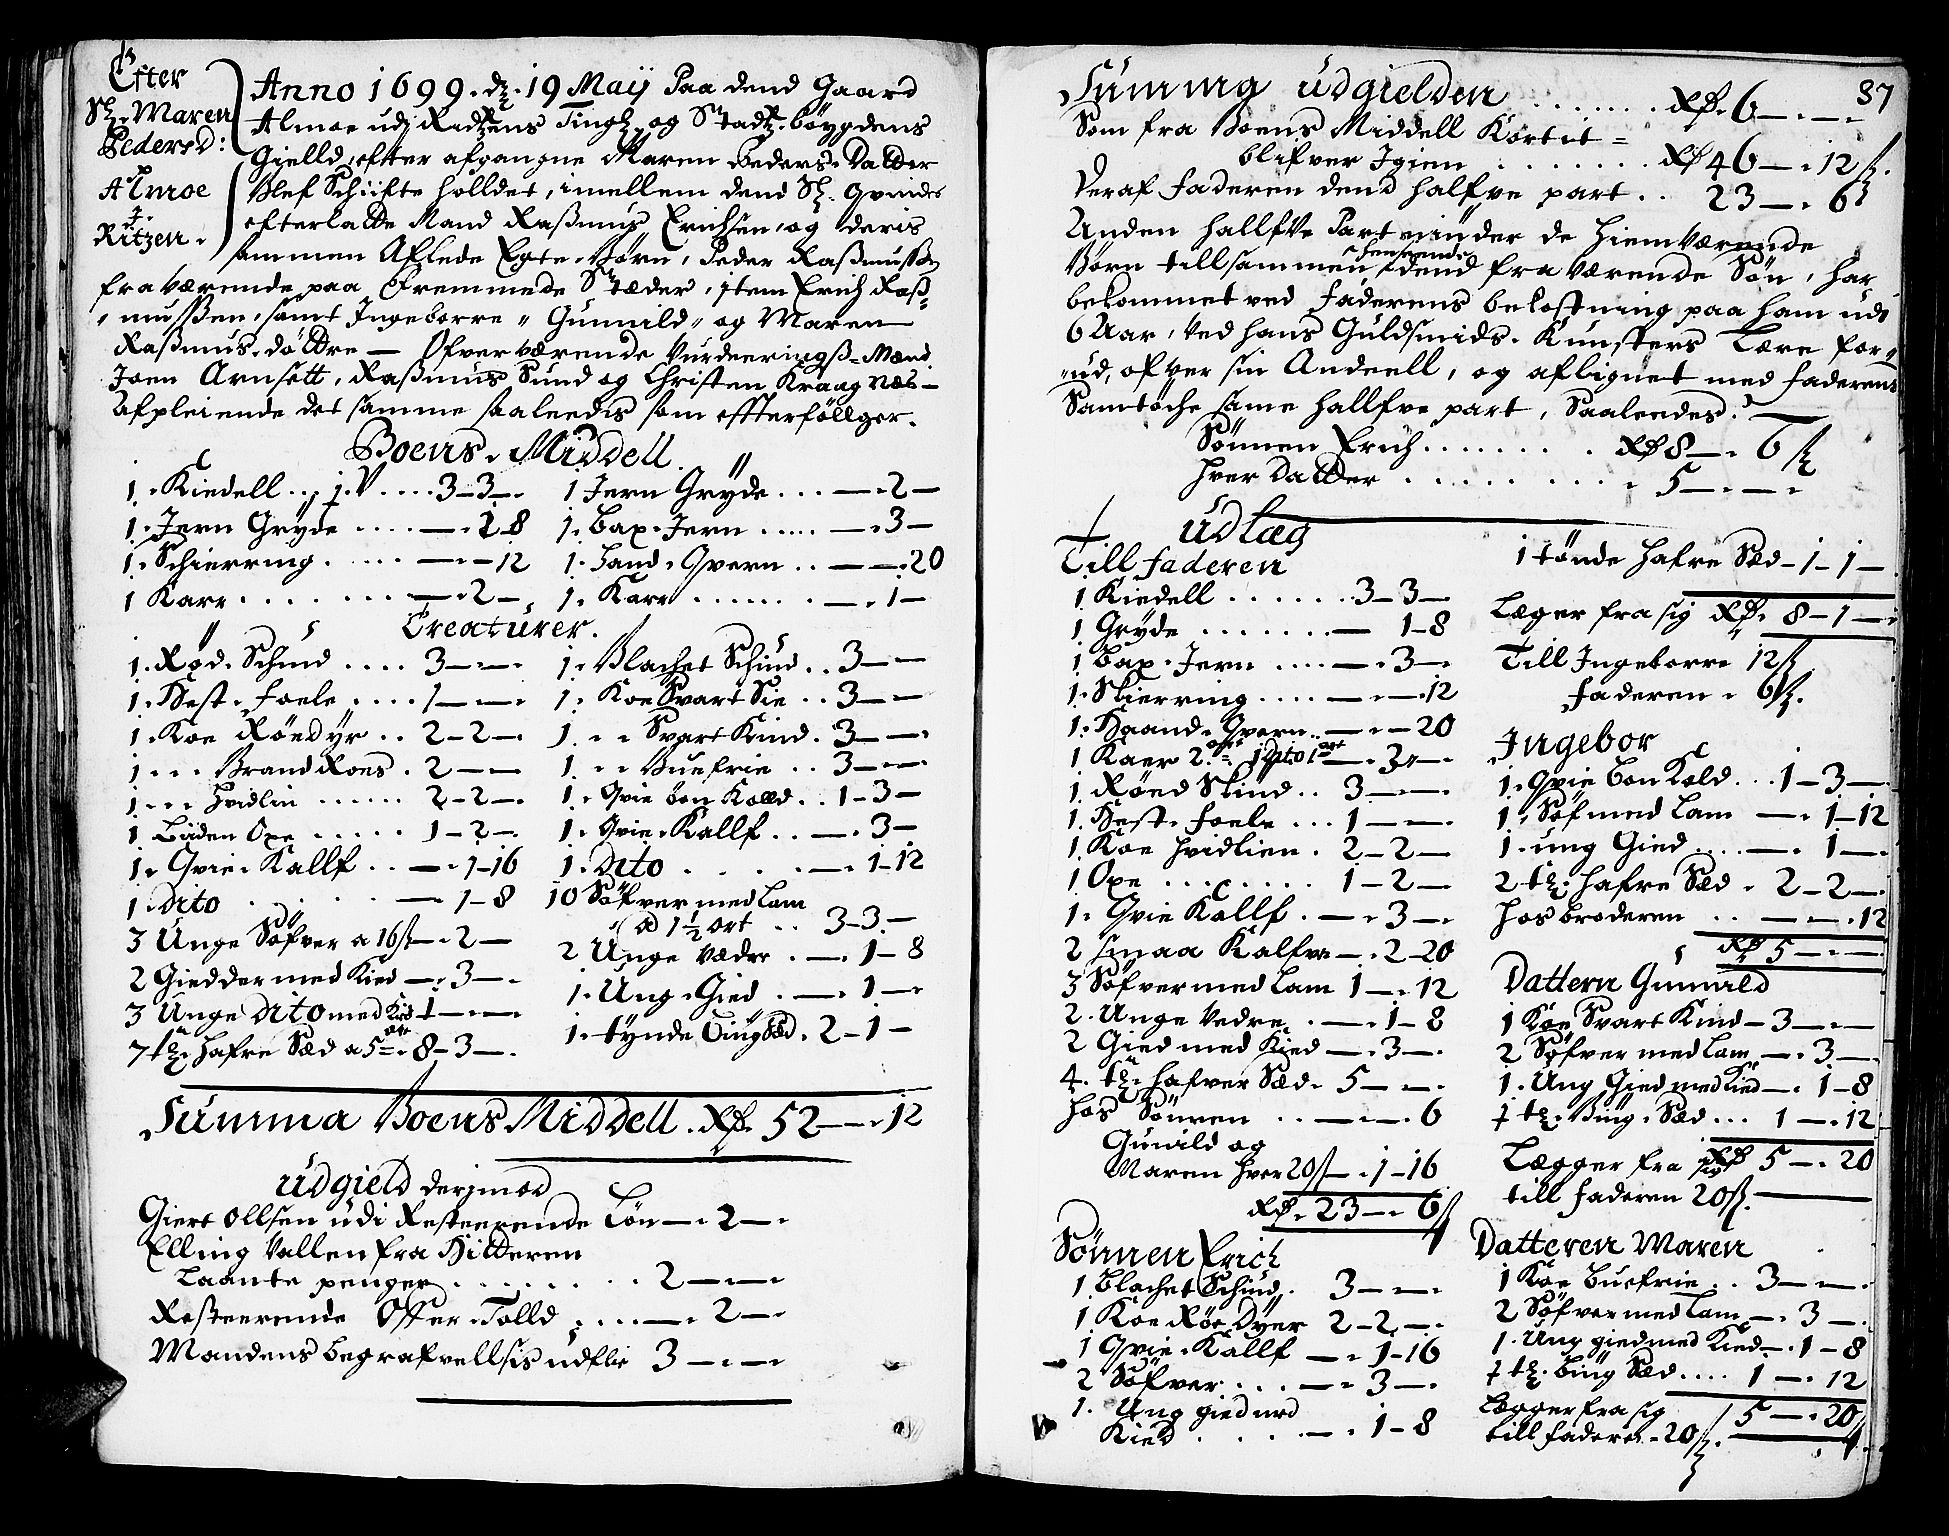 Efter
Sl. Maren
Pedersd:
Almoe
i
Ritzen.
Anno 1699. dz. 19 Maij Paa dend Gaard
Almoe udj Redtzens Tingl. og Stadtz. böygdens
Gielld, efter afgangne Maren Peders. Datter
Blef Schiifte holldet, imellem dend Sl. Qvindes
efterlatte Mand Rasmus Erichsen, og deris
sammen Aflede Egte. Börn, Peder Rasmussen
fraværende paa fremmede Stæder, item Erich Ras-
mussen, samt Ingeborre, Gunnild, og Maren
Rasmus. döttre — Ofverværende Vurdeerings-Mænd
Joen Arnsett, Rasmus Sund og Christen Kraagnæs-
Afpleiende det samme saaleedis som effterföllger.
Boens. Middell.
1. Kiedell . . j. V . . . . 3-3-.
1. Jern Gryde .... — . 1-8
1. Schierring . .... — . — 12
1 Karr . . . . . . . — . 2 —
1 Jern Gryde ... — . 2 —
1. bax. Jern ..... — . 3 —
1. Haand. Qvern .. — — . 20
1. Karr ....... — . 1 —
Creaturer.
1. Rød. Schiud .... 3 — . — .
1. Hest. foele .... 1 — . — .
1. Koe Röedyr .. 2 - 2 — .
1 . . . Brand Roes . 2 — . —
1 . . . Hvidlin ...... 2 - 2 — .
1 Liden Oxe ..... 1 - 2 — .
1. Qvie. Kallf .. — . 1 - 16
1. Dito . . . . . . — 1 - 8
3 Unge Söfver a 16s — . 2 —
2 Giedder med Kied — . 3 — .
3 Unge Dito med Kied 1 — . — .
7 tz. Hafre Sæd a 5 ort . 8 - 3 — .
1. Blachet Schiud .. 3 — . —
1. Koe Svart Sie .. 3 — . —
1. . . Svart Kind . 3 — . — .
1 . . Buefrie .. 3 — . — .
1. Qvie bon Kolld .. 1 - 3 —
1. Qvie. Kallf .. — . 3 —
1. Dito . . . . — . 1 - 12
10 Söfver med Lam
a 1½ ort .. 3 - 3 . —
2 Unge Væder . — . 1 - 8
1. Ung. Gied . — . 1 — .
1. tynde Bÿug Sæd . 2 - 1 —
Summa Boens Middell . Rd. 52 — . 12
Udgield derjmod
Giert Ollsen udi Resteerende Lön — . 2 — .
Elling Vallen fra Hitteren
Laante penger ....... 2 — . —
Resteerende Offer. Tolld .... — . 2 — .
Mandens begrafvellsis udflie 3 — . — .
37
Summa Udgielden ....... Rd. 6 — . — .
Som fra Boens Middell Kortit =
blifver Igien ........ Rd 46 — . 12 s.
Deraf Faderen dend halfve part .. 23 — . 6 s
Anden hallfve Part niuder de hiemværende
Börn tillsammen, dend fraværende Søn, har
bekommet ved Faderens bekostning paa ham udi
6 Aar, ved hans Guldsmids. Kunsters Lære for-
ud, ofver sin Andeell, og aflignet med faderens
Samtöche same hallfve part, Saaleedes.
Sönnen Erich ....... Rd 8 — . 6 s
Hver Datter ......... 5 — . — .
Udlæg
Till Faderen
1 Kiedell ...... 3 - 3 — .
1 Gryde ....... — 1 - 8
1 bax. Jern .... — . 3 — .
1. Skierring .... — . — . 12
1. Haand. Qvern .. — . — 20
1 Kaer 2. ort 1 Dto 1 ort — . 3 — .
1 Röed Skiud .. 3 — . — .
1. Hest. foele ... 1 — . — .
1. Koe Hvidlien . 2 - 2 — .
1 Oxe ......... 1 - 2 — .
1. Qvie Kallf . — . 3 — .
2 smaa Kalfve — . 2 - 20
3 Söfver med Lam 1 — . 12
2. Unge Vedre . — . 1 - 8
2 Gied med Kied — . 3 — .
4. tz. hafver Sæd . 5 — . — .
hos Sönnen .. — . — . 6
Gunild og
Maren hver 20 s — . 1 - 16
Rd. 23 — . 6 s
Sönnen Erich
1 Blachet Schiud . 3 — . — .
1 Koe Röe Dyer 2 - 2 — .
1 Qvie. Kallf — . 1 - 16
2 Söfver .... — . 3 — .
1. Ung gied med
Kied . . . . — . 1 - 8
1 tönde Hafre Sæd - 1 - 1 — .
Læger fra sig Rd. 8 - 1 — .
Till Ingeborre 12 s
Faderen . 6 s.
Ingebor
1. Qvie bon Kold ... 1 - 3 — .
1. Söf med Lam — . 1 - 12
1. ung Gied .... — . 1 — .
2 tz. Hafre Sæd . 2 - 2 — .
hos broderen .. — . — . 12
Rd 5 — . — .
Dattern Gunnild
1 Koe Svart Kind — 3 — . —
2 Söfver med Lam — . 3 — .
1. Ung Gied med Kied — . 1 - 8
½ tz. Büng. Sæd ... 1 — . 12
Lægger fra sig Rd 5 — . 20
till Faderen 20 s.
Datteren Maren
1 Koe Buefrie .. 3 — . — .
2 Söfver med Lam — . 3 — .
1. Ung gied med Kied — . 1 - 8
½ tz. büng Sæd .... 1 — . 12
Legger fra sig 5 — . 20 s
till faderen - 20 s.